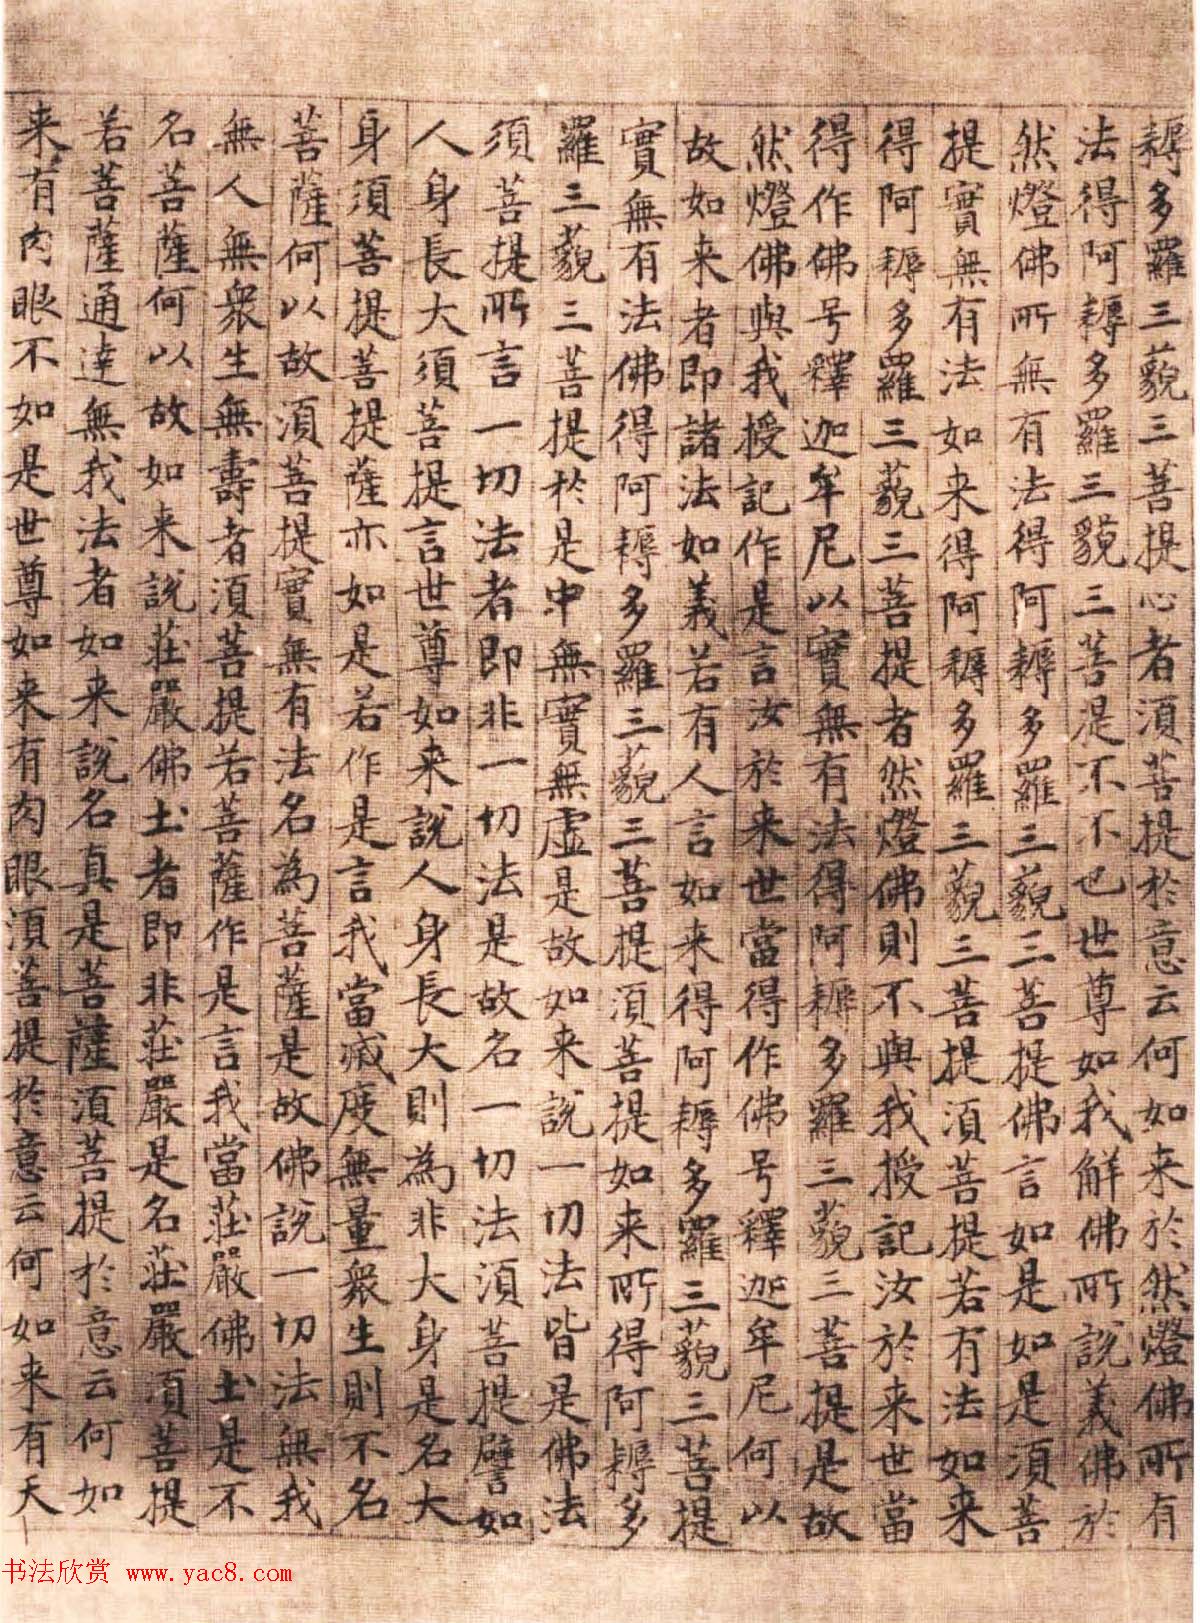 耨多羅三藐三菩提心者須菩提於意云何如来於然燈佛所有
法得阿耨多羅三藐三菩提不不也世尊如我解佛所說義佛於
然燈佛所無有法得阿耨多羅三藐三菩提佛言如是如是須菩
提實無有法如来得阿耨多羅三藐三菩提須菩提若有法如来
得阿耨多羅三藐三菩提者然燈佛則不與我授記汝於来世當
得作佛号釋迦牟尼以實無有法得阿耨多羅三藐三菩提是故
然燈佛與我授記作是言汝於来世當得作佛号釋迦牟尼何以
故如来者即諸法如義若有人言如来得阿耨多羅三藐三菩提
實無有法佛得阿耨多羅三藐三菩提須菩提如来所得阿耨多
羅三藐三菩提於是中無實無虛是故如来說一切法皆是佛法
須菩提所言一切法者即非一切法是故名一切法須菩提譬如
人身長大須菩提言世尊如来說人身長大則為非大身是名大
身須菩提菩提薩亦如是若作是言我當滅度無量衆生則不名
菩薩何以故須菩提實無有法名為菩薩是故佛說一切法無我
無人無衆生無壽者須菩提若菩薩作是言我當莊嚴佛土是不
名菩薩何以故如来說莊嚴佛土者即非莊嚴是名莊嚴須菩提
若菩薩通達無我法者如来說名真是菩薩須菩提於意云何如
来有肉眼不如是世尊如来有肉眼須菩提於意云何如来有天
书法欣赏 www.yac8.com